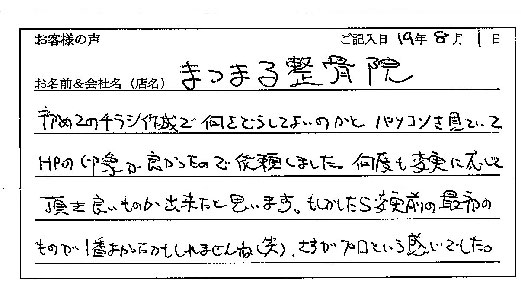 お客様の声 ご記入日 19年 8月 1日
お名前&会社名(店名) まつまる整骨院
初めてのチラシ作成で何をどうしてよいのかと パソコンを見ていて
HPの印象が良かったので依頼しました。何度も変更に応じて
頂き良いものが出来たと思います。もしかしたら変更前の最初の
ものが1番よかったかもしれませんね(笑)、さすがプロという感じでした。